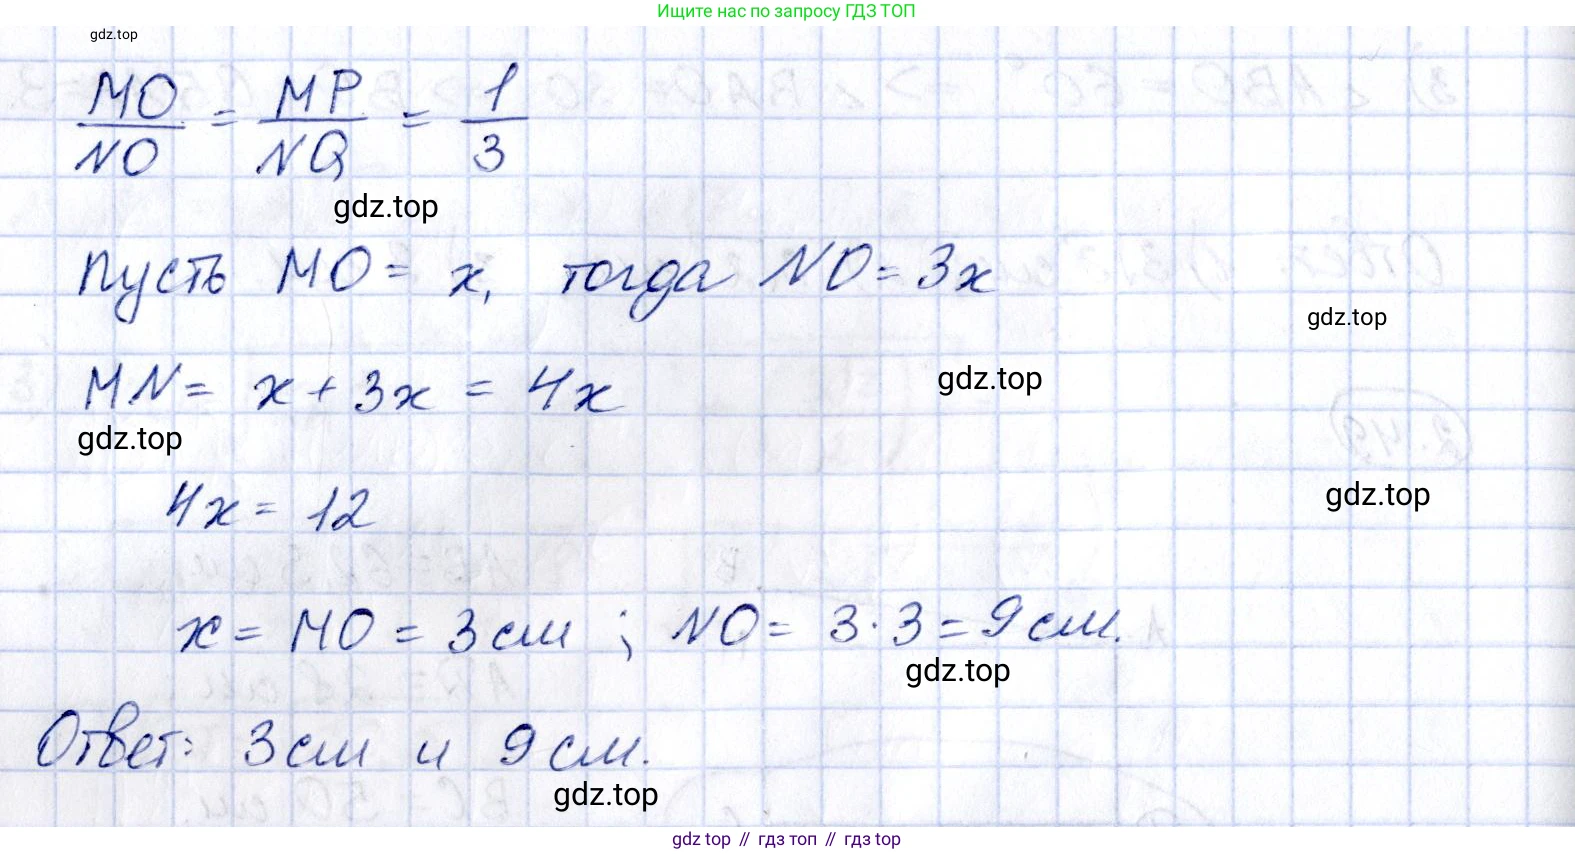 Ищите нас по запросу ГДЗ ТОП
gdz.top
MO/NO = MP/NQ = 1/3
gdz.top
Пусть MO = x, тогда NO = 3x
gdz.top
MN = x + 3x = 4x
gdz.top
gdz.top
4x = 12
gdz.top
x = MO = 3 см ; NO = 3 · 3 = 9 см.
gdz.top
Ответ: 3 см и 9 см.
gdz.top
gdz top // гдз топ // гдз top